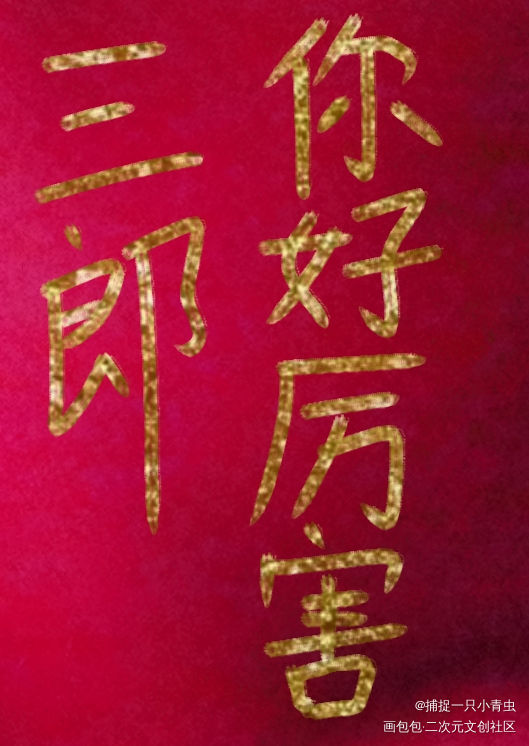 你好厉害
三郎
@捕捉一只小青虫
画包包·二次元文创社区